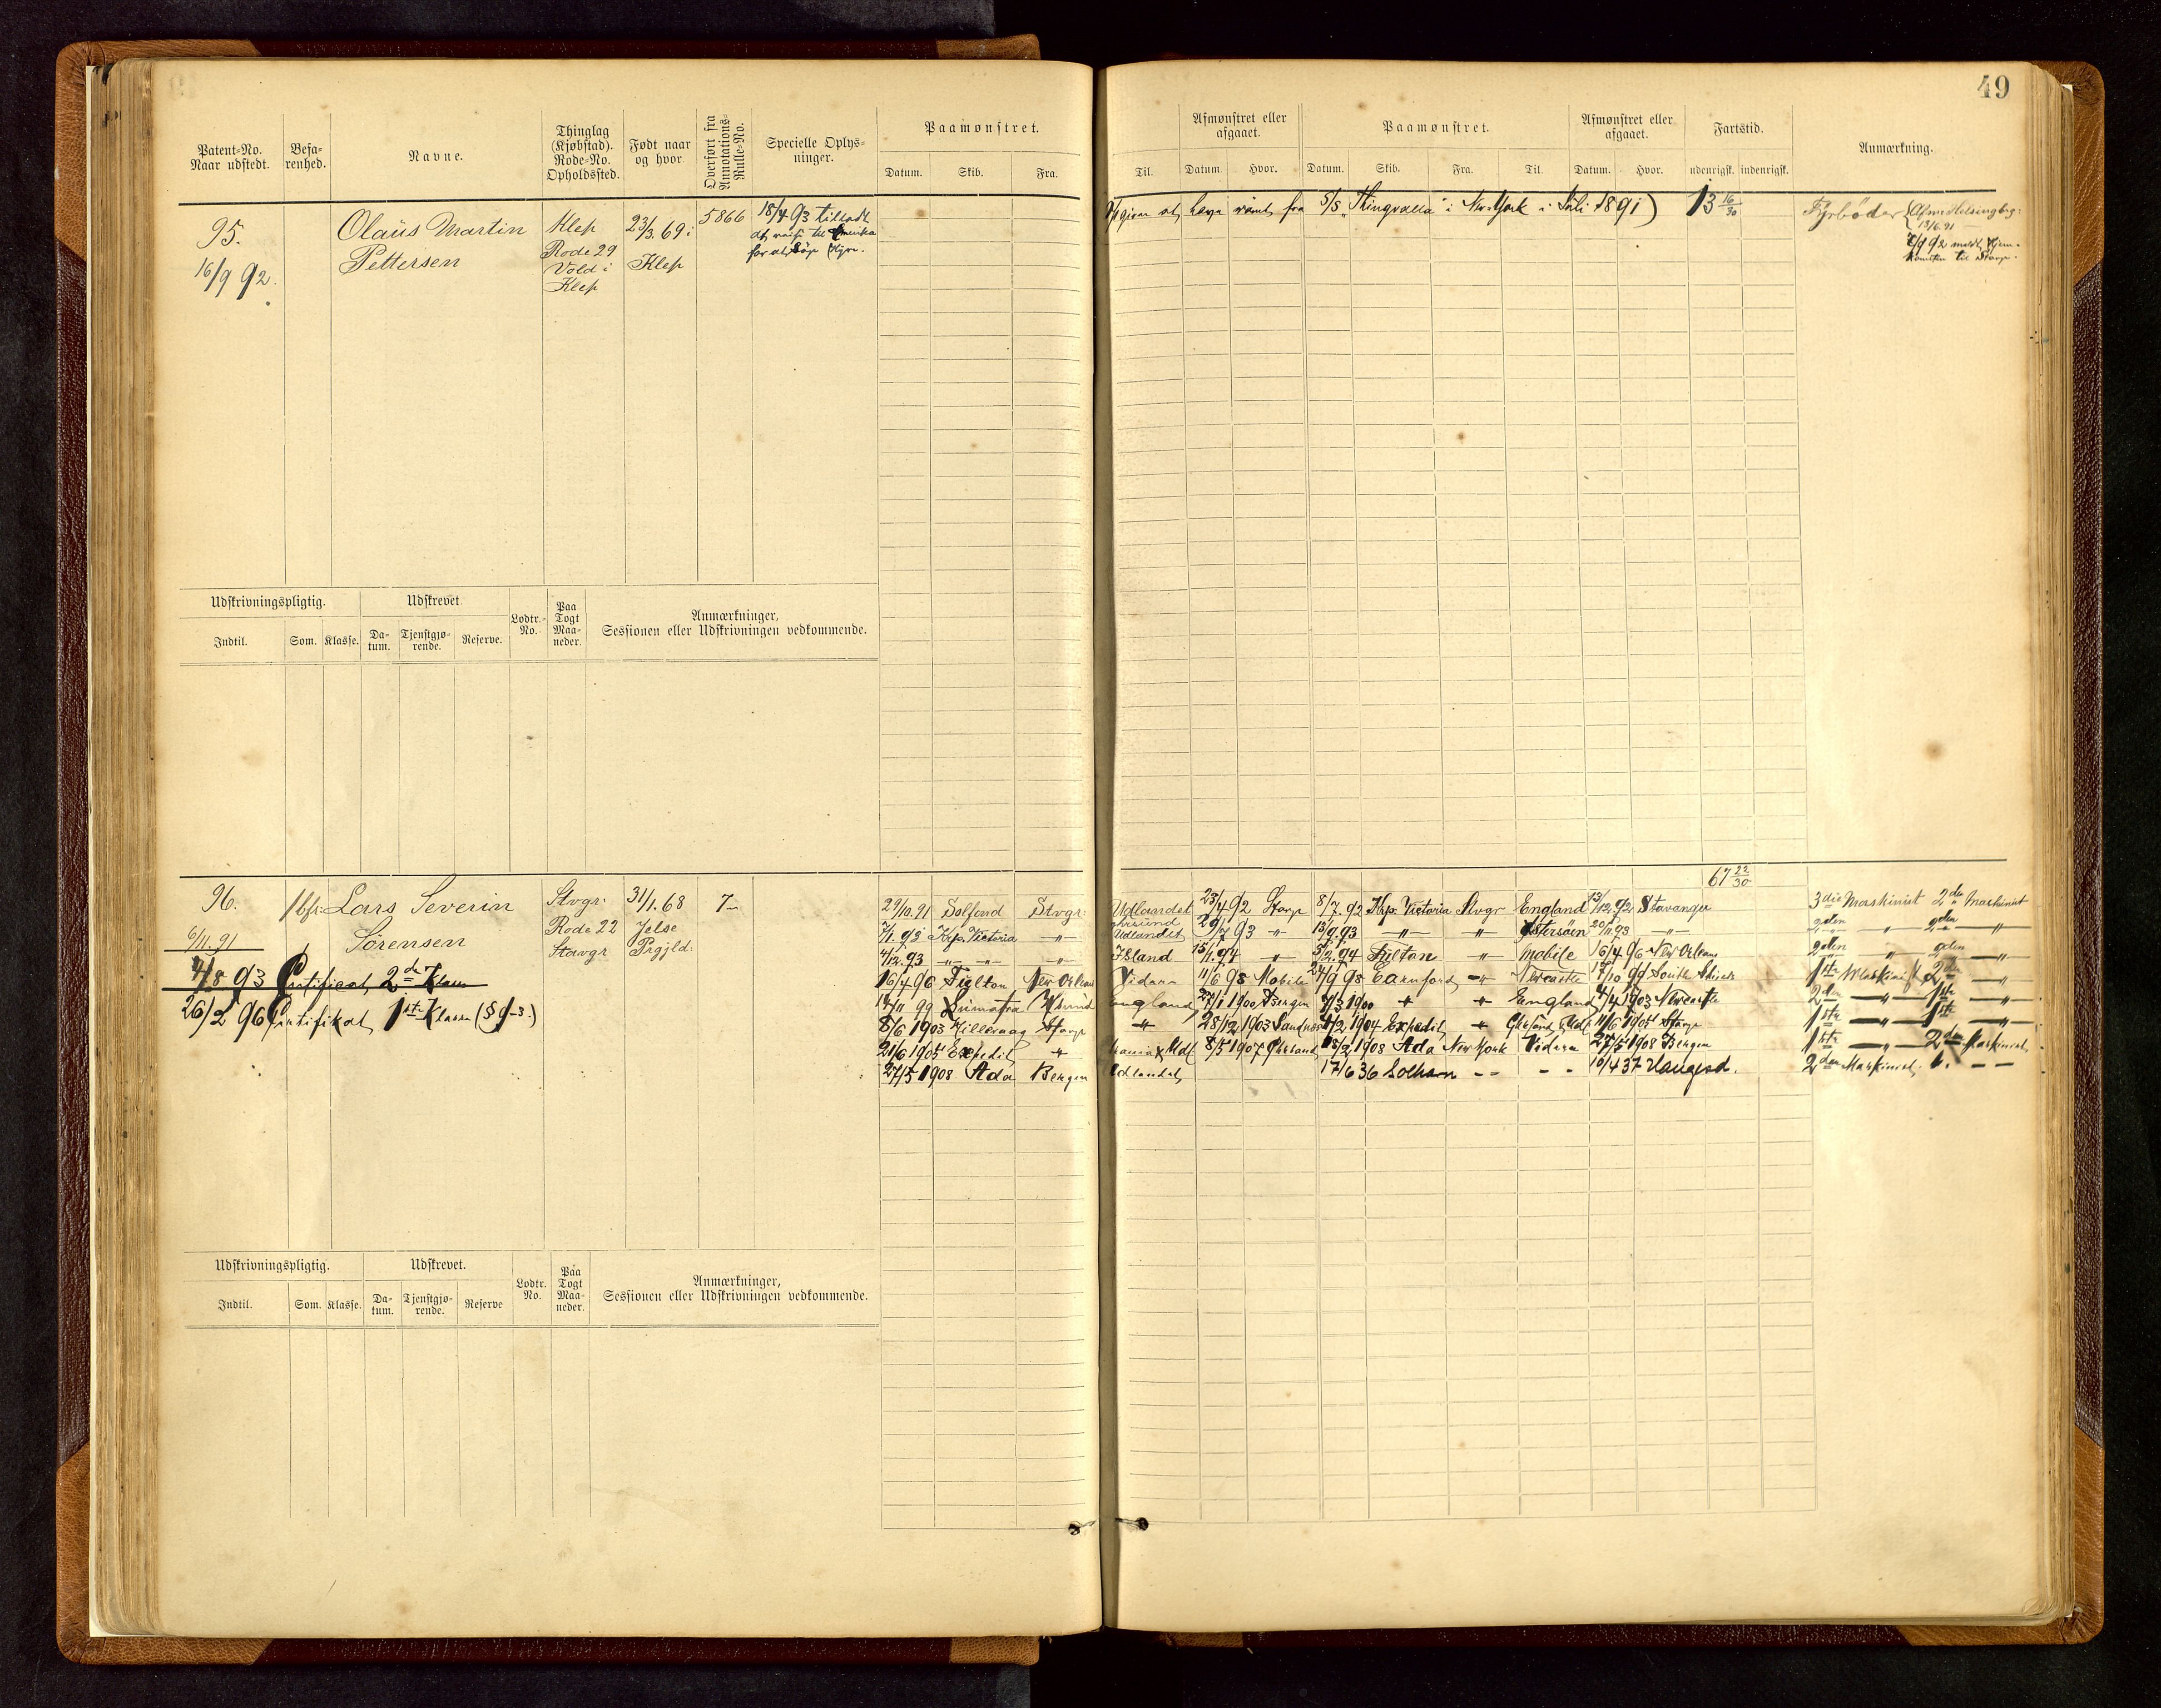 49
Patent-No. Naar udstedt.
Befarenhed.
Navne.
Thinglag (Kjøbstad). Rode-No. Opholdssted.
Født naar og hvor
Overført fra Annotations-Rulle-No.
Specielle Oplysninger.
Paamønstret.
Datum. Skib. Fra.
Til.
Afmønstret eller afgaaet.
Datum Hvor.
Paamønstret.
Datum. Skib. Fra. Til.
Afmønstret eller afgaaet.
Datum. Hvor.
Fartstid.
udenrigsk. indenrigsk.
Anmærkning.
95.
16/9 92.
Olaus Martin
Pettersen
Klep
Rode 29
Vold i
Klep
23/3. 69 i
Klep
5866
18/4 93 tilladt
at reise til Amerika
for at søge Hyre.
at have rømt fra S/S "Thingvalla" i New York i Juli 1891)
13 16/30
Fyrbøder
13/6 91
92 meldt Hjem-
komsten til
Udskrivningspligtig. Udskrevet.
Indtil. Som. Klasse. Datum. Tjenstgjørende. Reserve. Lodtr.-No. Paa Togt Maaneder.
Anmærkninger,
Sessionen eller Udskrivningen vedkommende.
67 22/30
96.
6/11. 91
4/8 93 Certificat 2den Klasse
26/2 96 Certifikat 1ste Klasse (§ 9-3.)
Lars Severin
Sørensen
Stvgr.
Rode 22
Stavgr
31/1. 68
Jelse
Prgjld.
7
29/10. 91 Solfond Stvgr. Udlandet 23/4 92 8/7. 92 Krp. Victoria Stvgr England 13/12. 92 Stavanger 3die Maskinist 2den Maskinist
7/1. 93 Krp. Victoria — " — Udlandet 29/7 93 — " — 13/9. 93 — " — — " — Østersøen 20/11 93 — " — 2den " 2den — " —
4/12. 93 — " — — " — Island 15/1. 94 — " — 94 — " — Mobile 16/4 96 New Orleans 2den " 2den — " —
16/4 96 New Orleans Vidare 11/6 98 Mobile 24/9 98 — " — Newcastle 99 South Shields 1ste Maskinist 2den — " —
99 Sumatra England 1900 Bergen 1900 " " England 1903 Newcastle 2den — " — 1ste — " —
8/6 1903 " 28/12 1903 Sandnes 1904 Expedit " 1905 1ste — " — 1ste — " —
21/6 1905 Expedit " 8/5 1907 1908 Ada New York Vidare 27/5 1908 Bergen 1ste — " — 2den Maskinist
27/5 1908 Ada Bergen Udlandet 17/6 36 Solhavn — — — — 10/4 37 Haugesd. 2den Maskinist — —
Udskrivningspligtig. Udskrevet.
Indtil. Som. Klasse. Datum. Tjenstgjørende. Reserve Lodtr. No. Paa Togt Maaneder.
Anmærkninger,
Sessionen eller Udskrivningen vedkommende.